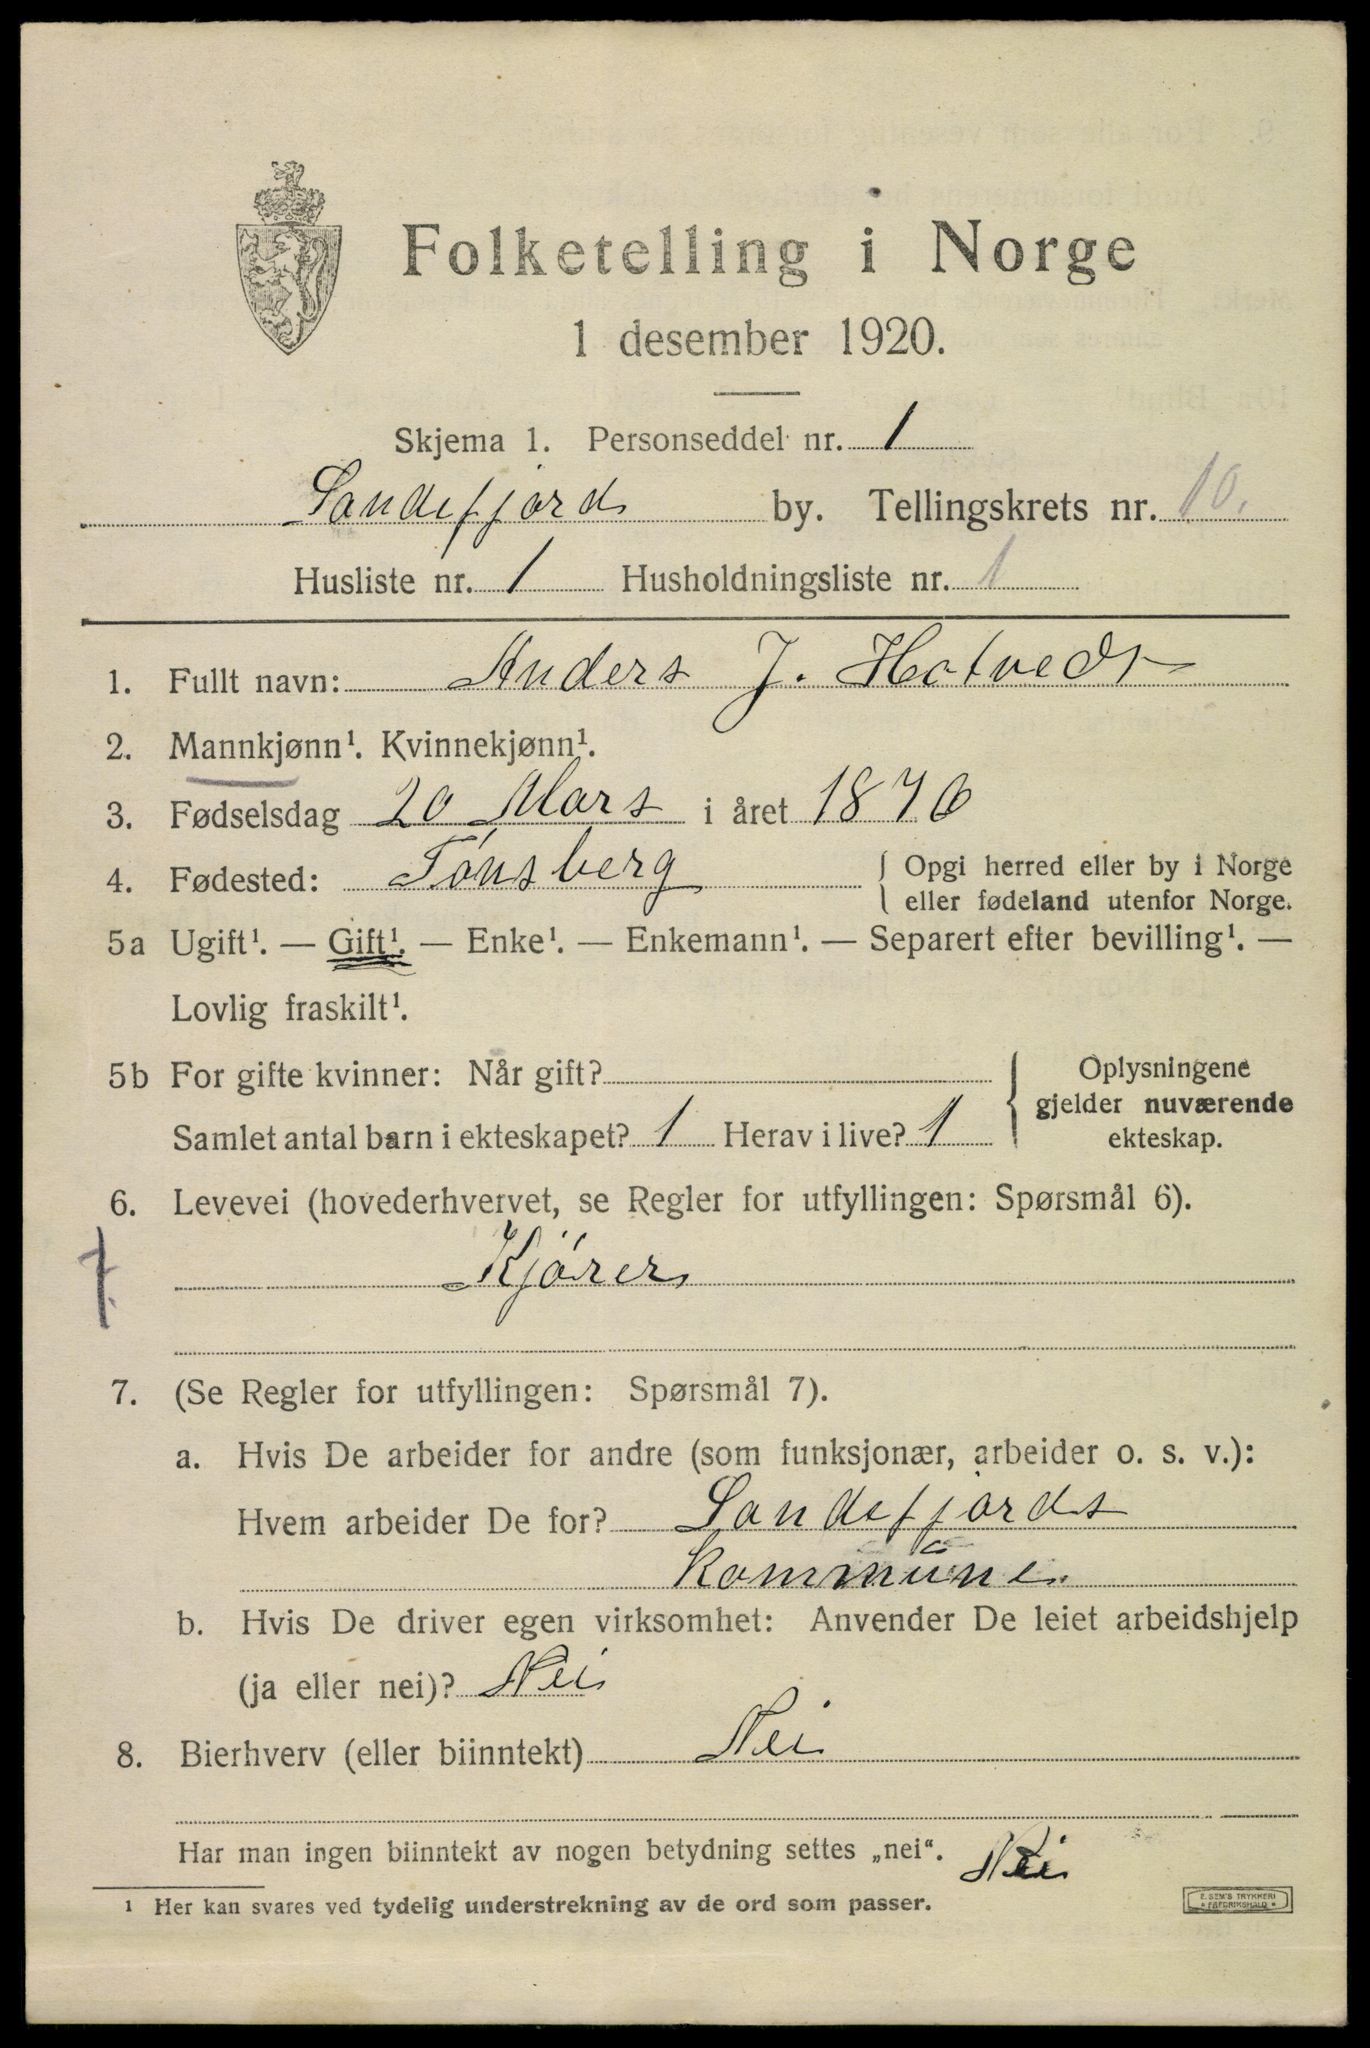 Folketelling i Norge
1 desember 1920.
Skjema 1. Personseddel nr. 1
Sandefjord by. Tellingskrets nr. 10.
Husliste nr. 1 Husholdningsliste nr. 1
1. Fullt navn: Anders J. Hotvedt
2. Mannkjønn¹. Kvinnekjønn¹.
3. Fødselsdag 20 Mars i året 1876
4. Fødested: Tønsberg { Opgi herred eller by i Norge
eller fødeland utenfor Norge.
5a Ugift¹. — Gift¹. — Enke¹. — Enkemann¹. — Separert efter bevilling¹. —
Lovlig fraskilt¹.
5b For gifte kvinner: Når gift?
Samlet antal barn i ekteskapet? 1 Herav i live? 1
{ Oplysningene
gjelder nuværende
ekteskap.
6. Levevei (hovederhvervet, se Regler for utfyllingen: Spørsmål 6).
7. Kjörer
7. (Se Regler for utfyllingen: Spørsmål 7).
a. Hvis De arbeider for andre (som funksjonær, arbeider o. s. v.):
Hvem arbeider De for? Sandefjords
kommune
b. Hvis De driver egen virksomhet: Anvender De leiet arbeidshjelp
(ja eller nei)? Nei
8. Bierhverv (eller biinntekt) Nei
Har man ingen biinntekt av nogen betydning settes „nei“. Nei
¹ Her kan svares ved tydelig understrekning av de ord som passer.
E. SEM'S TRYKKERI
* FREDRIKSHALD *